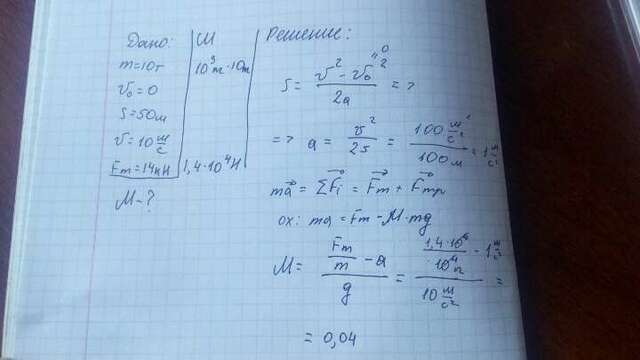 Дано:
m=10т
v₀=0
S=50м
v=10 м/с
Fт=14кН
М-?
СИ
10³m·10m
1,4·10⁴Н
Решение:
S= (v²-v₀²)/2a =>
"0
=> a= v²/2s = (100 м²/с²)/(100м) =1 м/с²
ma⃗ = ΣF⃗i = F⃗m + F⃗mp
ox: ma = Fm - M·mg
M= (Fm/m - a)/g = (1,4·10⁴/10⁴ - 1 м/с²)/(10 м/с²) =
= 0,04